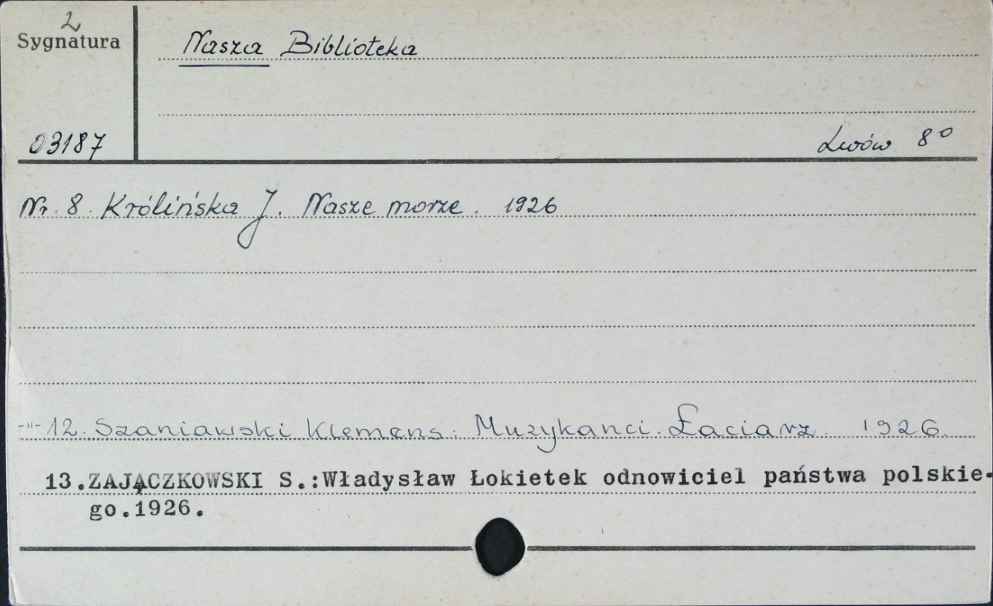 2
Sygnatura
Nasza Biblioteka
03187
Lwów 8°
Nr. 8. Królińska J. Nasze morze. 1926
-"- 12. Szaniawski Klemens: Muzykanci. Łaciarz 1926.
13.ZAJĄCZKOWSKI S.:Władysław Łokietek odnowiciel państwa polskie-
go.1926.